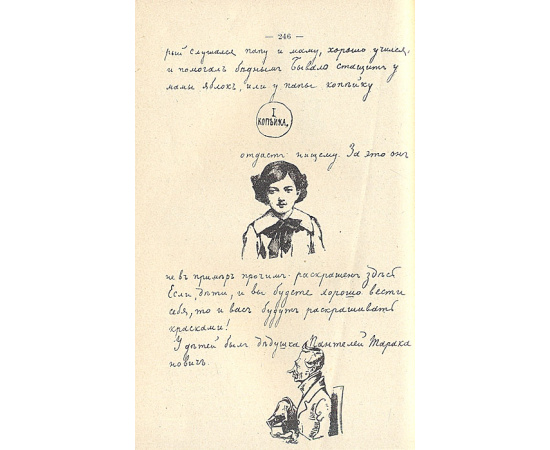 — 246 —
рый слушался папу и маму, хорошо учился
и помогалъ бѣднымъ бывало стащитъ у
мамы яблокъ, или у папы копѣйку
1
КОПѢЙКА.
отдастъ нищему. За это онъ
не въ примѣръ прочимъ раскрашенъ здѣсь
Если, дѣти, и вы будете хорошо вести
себя, то и васъ будутъ раскрашивать
красками!
У дѣтей былъ дѣдушка Пантелей Тарака
новичъ.